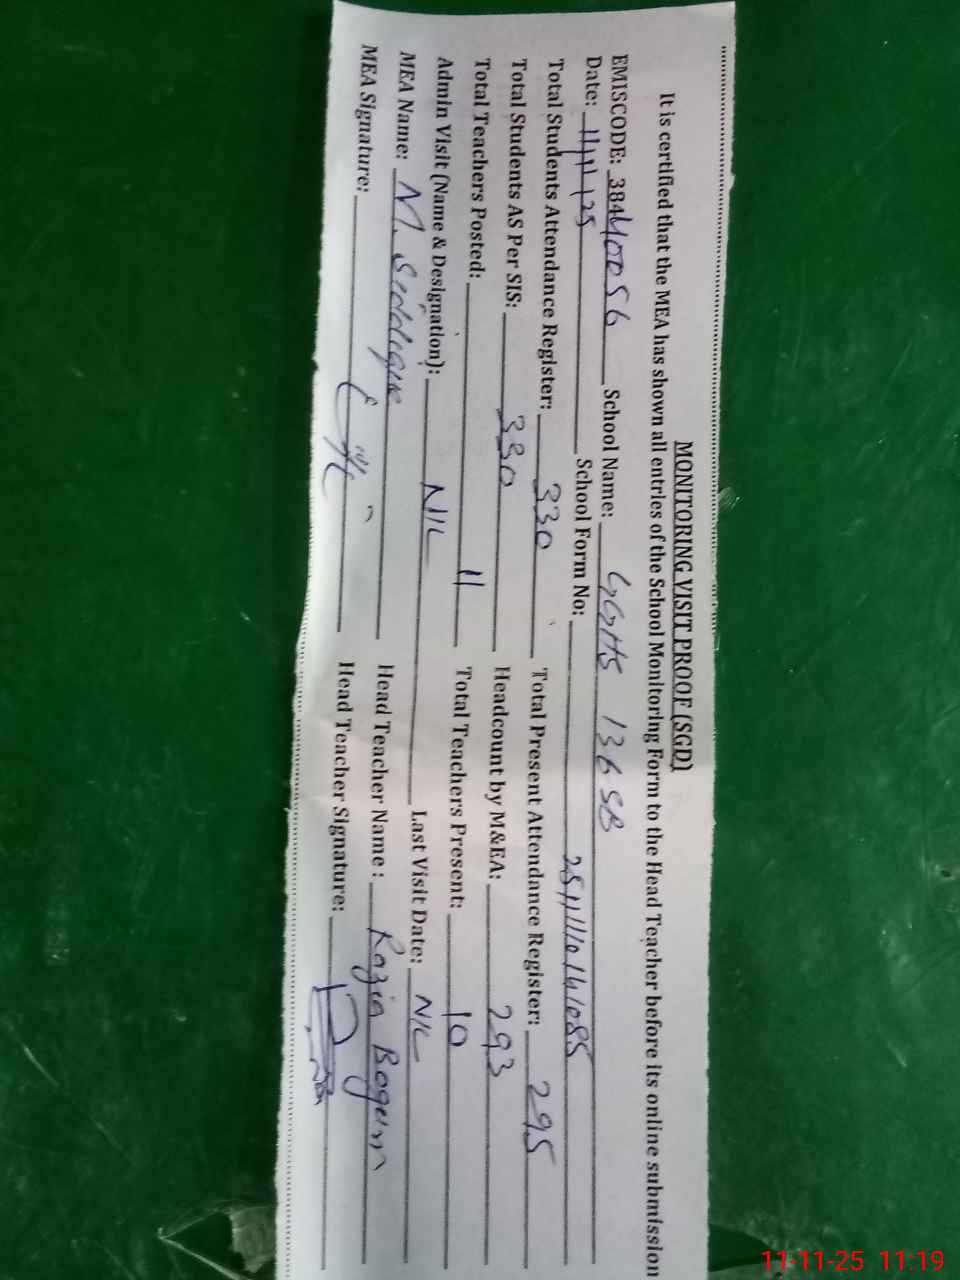 MONITORING VISIT PROOF (SGD)
It is certified that the MEA has shown all entries of the School Monitoring Form to the Head Teacher before its online submission
EMISCODE: 38440056 School Name: GGHS 136 SB
Date: 11/11/25 School Form No:
Total Students Attendance Register: 330 Total Present Attendance Register: 295
Total Students AS Per SIS: 330 Headcount by M&EA: 293
Total Teachers Posted: 11 Total Teachers Present: 10
Admin Visit (Name & Designation): NIL Last Visit Date: NIL
MEA Name: M. Siddique Head Teacher Name : Razia Begum
MEA Signature: Head Teacher Signature:
11-11-25 11:19